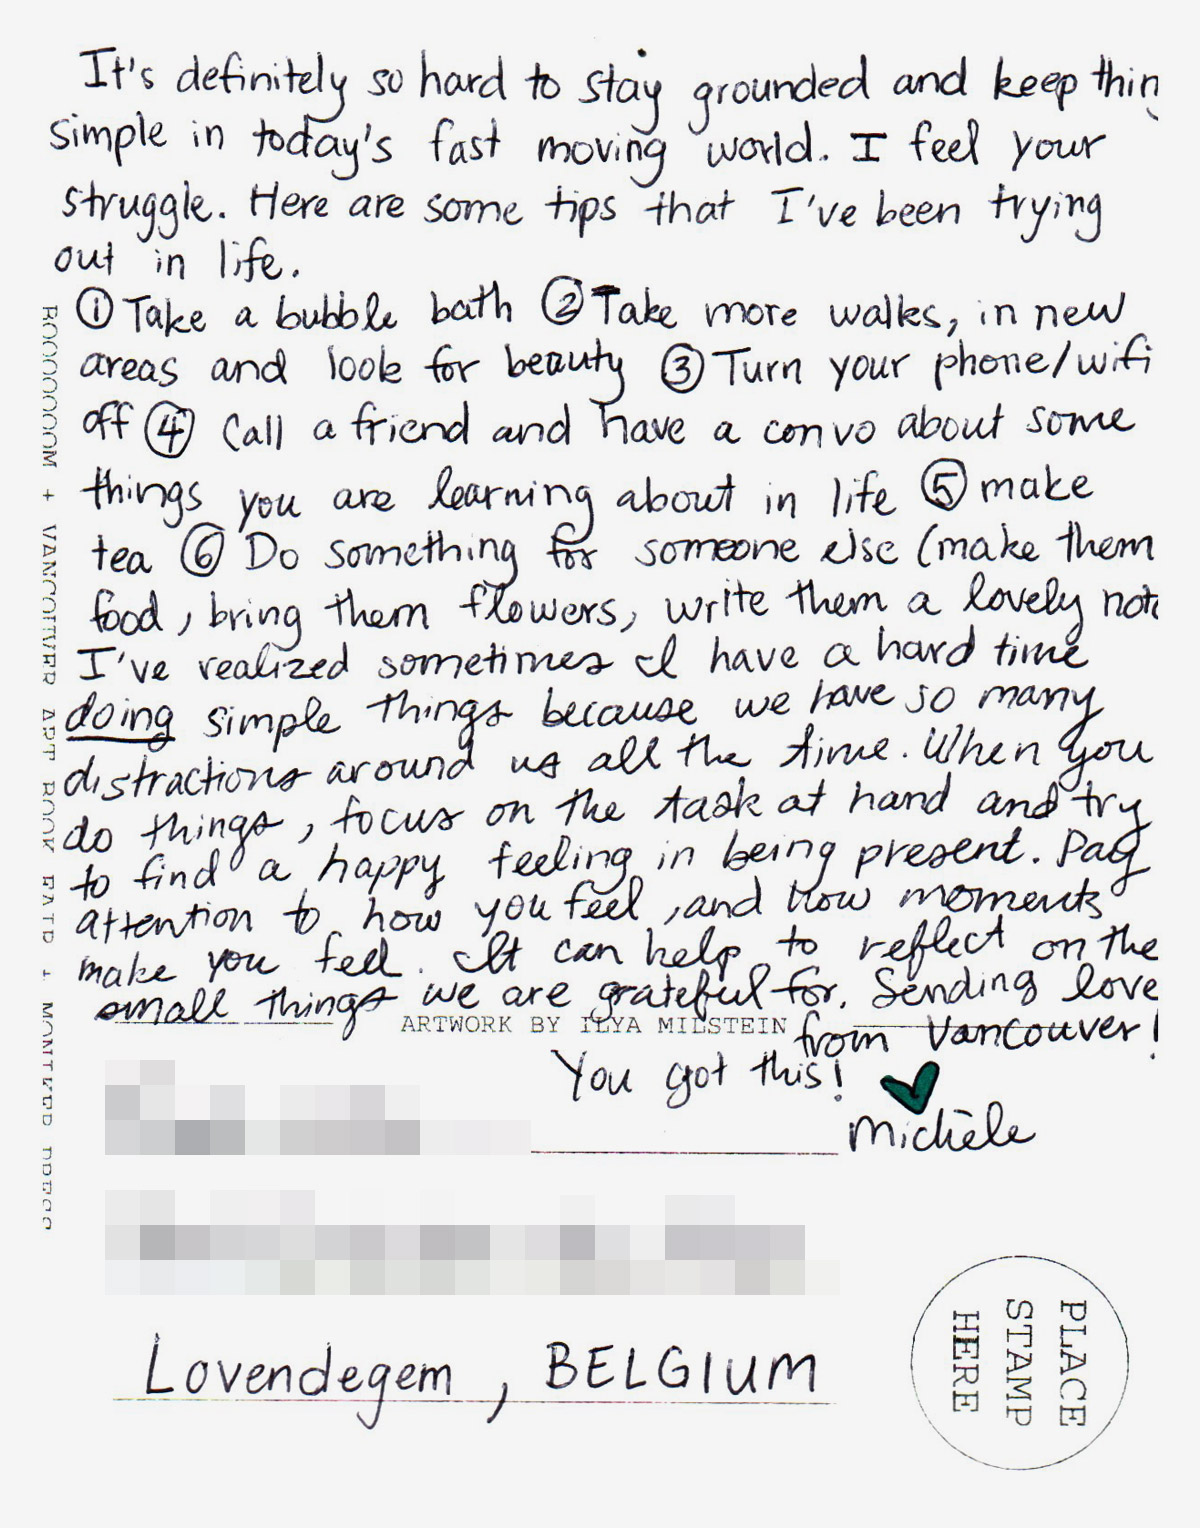 It's definitely so hard to stay grounded and keep thin
simple in today's fast moving world. I feel your
struggle. Here are some tips that I've been trying
out in life.
① Take a bubble bath ② Take more walks, in new
areas and look for beauty ③ Turn your phone/wifi
off ④ Call a friend and have a convo about some
things you are learning about in life ⑤ make
tea ⑥ Do something for someone else (make them
food, bring them flowers, write them a lovely note
I've realized sometimes I have a hard time
doing simple things because we have so many
distractions around us all the time. When you
do things, focus on the task at hand and try
to find a happy feeling in being present. Pay
attention to how you feel, and how moments
make you feel. It can help to reflect on the
small things we are grateful for. Sending love
from Vancouver!
You got this!
Michèle
ARTWORK BY ILYA MILSTEIN
ROOOOOOOM + VANCOUVER ART BOOK FAIR + MONIKER PRESS
Lovendegem, BELGIUM
PLACE
STAMP
HERE